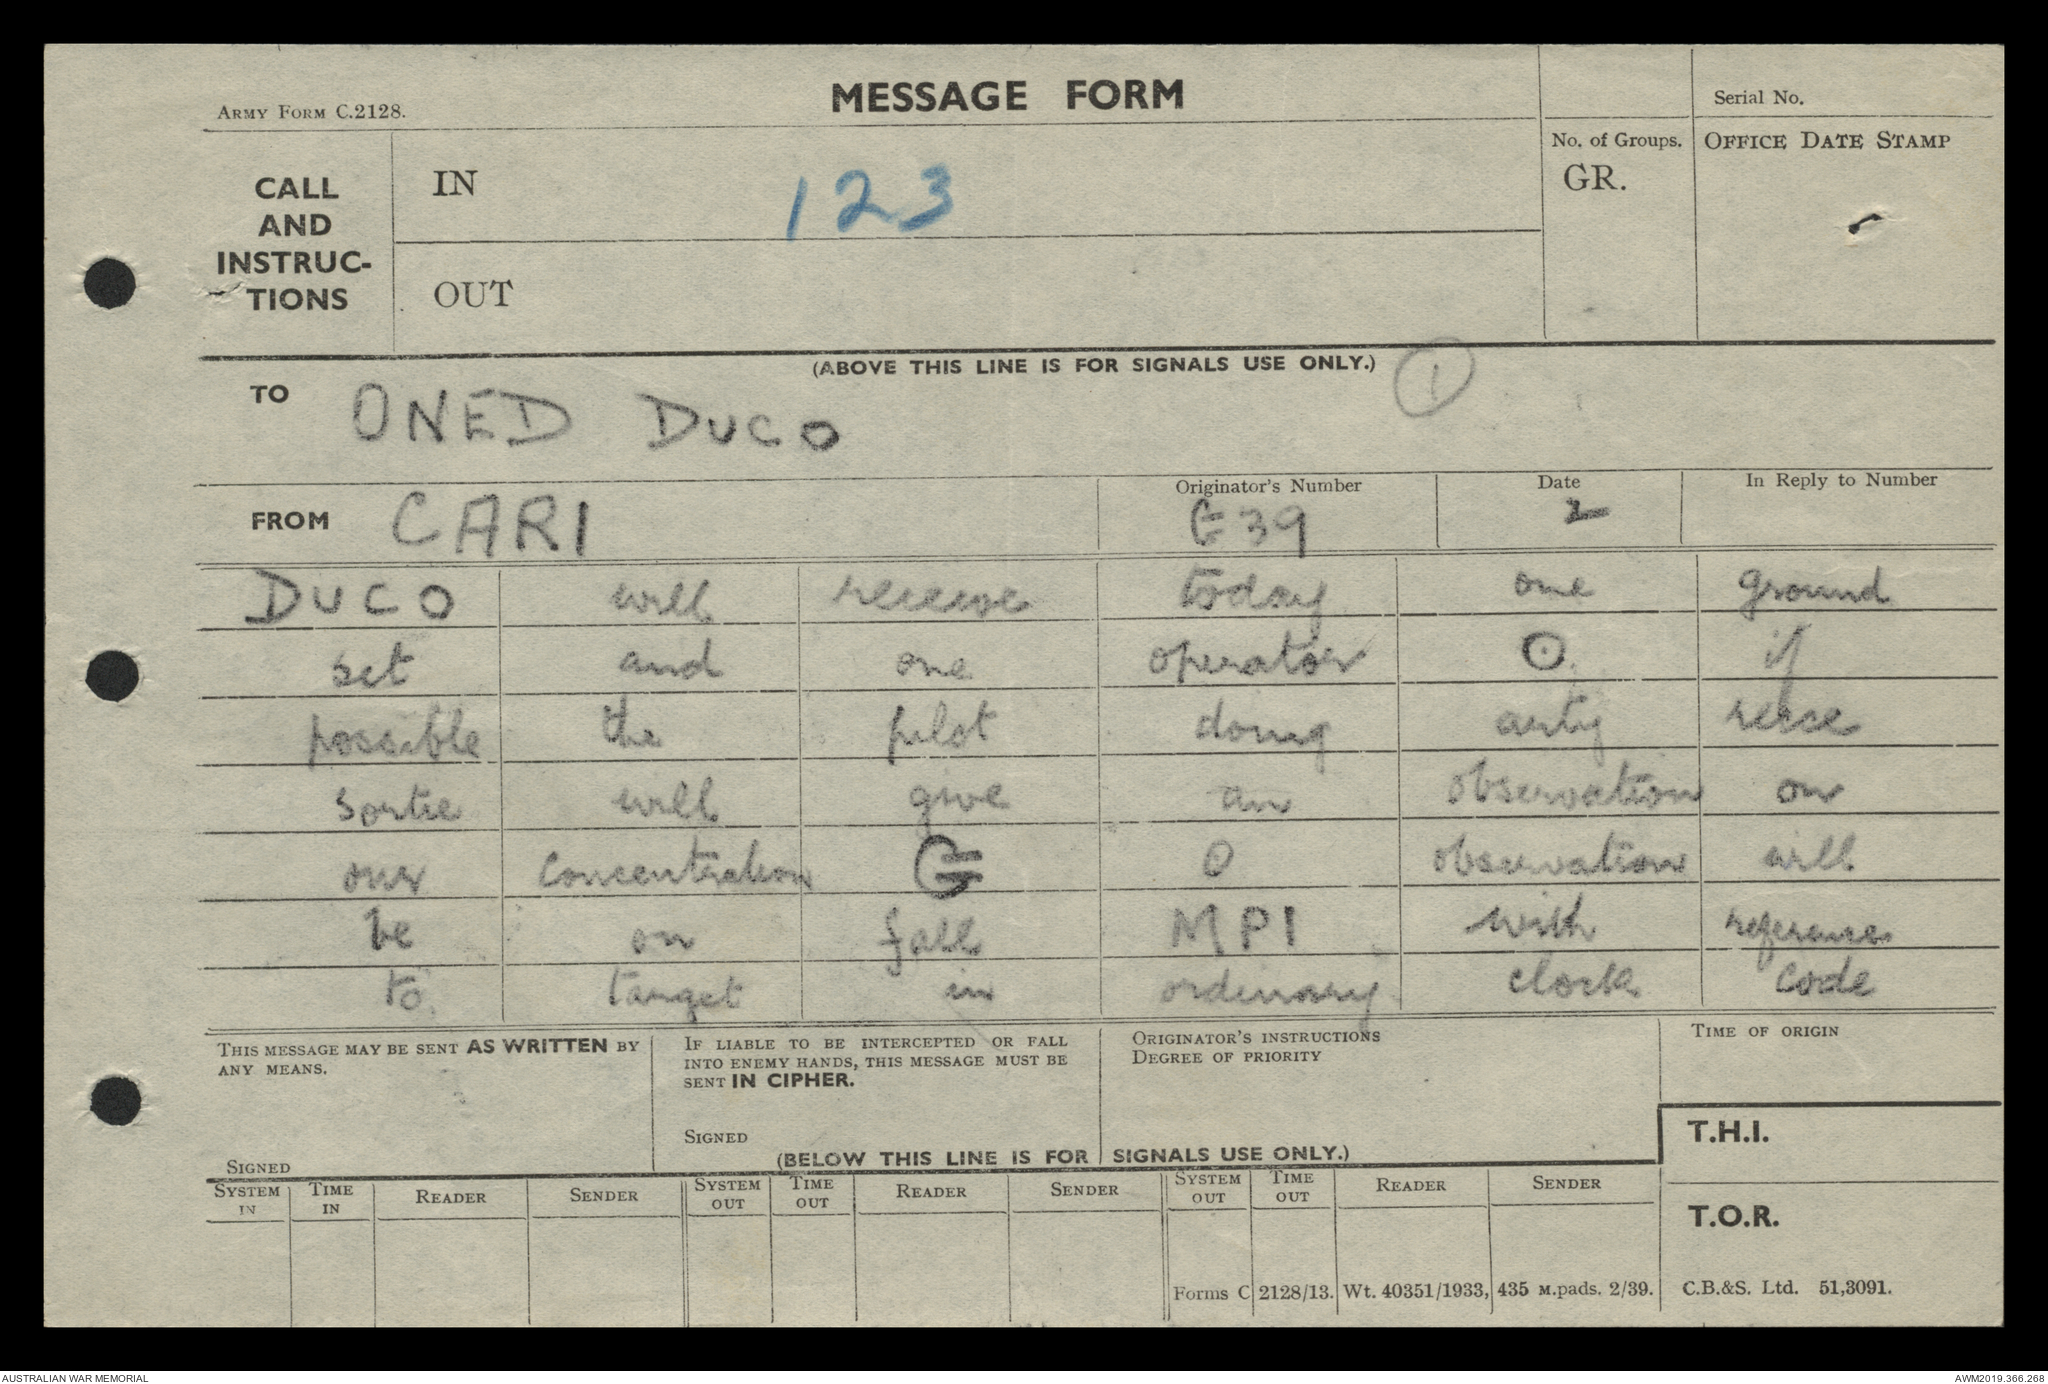 MESSAGE FORM
ARMY FORM C.2128.
Serial No.
CALL AND INSTRUC-TIONS
IN
123
No. of Groups.
GR.
OFFICE DATE STAMP
OUT
(ABOVE THIS LINE IS FOR SIGNALS USE ONLY.)
1
TO ONED DUCO
FROM CARI
Originator's Number
G39
Date
2
In Reply to Number
DUCO will receive today one ground
set and one operator ⊙ if
possible the pilot doing arty recce
sortie will give an observation on
our concentration G O observation will
be on fall MPI with reference
to target in ordinary clock code
THIS MESSAGE MAY BE SENT AS WRITTEN BY
ANY MEANS.
SIGNED
IF LIABLE TO BE INTERCEPTED OR FALL
INTO ENEMY HANDS, THIS MESSAGE MUST BE
SENT IN CIPHER.
SIGNED
ORIGINATOR'S INSTRUCTIONS
DEGREE OF PRIORITY
TIME OF ORIGIN
T.H.I.
(BELOW THIS LINE IS FOR SIGNALS USE ONLY.)
SYSTEM IN TIME IN READER SENDER SYSTEM OUT TIME OUT READER SENDER SYSTEM OUT TIME OUT READER SENDER
T.O.R.
Forms C 2128/13. Wt. 40351/1933, 435 M.pads. 2/39. C.B.&S. Ltd. 51,3091.
AUSTRALIAN WAR MEMORIAL
AWM2019.366.268